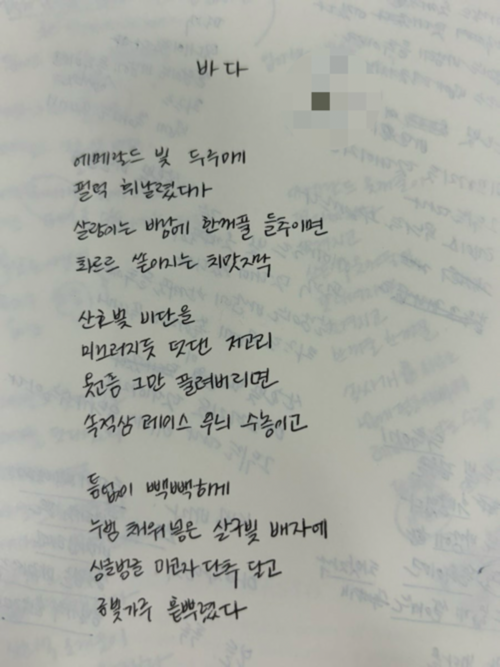 바다
에메랄드 빛 두루마기
펄럭 휘날렸다가
살랑이는 바람에 한꺼풀 들추이면
화르르 쏟아지는 치맛자락
산호빛 비단을
미끄러지듯 덧댄 저고리
옷고름 그만 풀려버리면
속적삼 레이스 무늬 수놓이고
틈없이 빽빽하게
누벼 채워넣은 살구빛 배자에
싱글벙글 마고자 단추 달고
금빛가루 흩뿌렸다